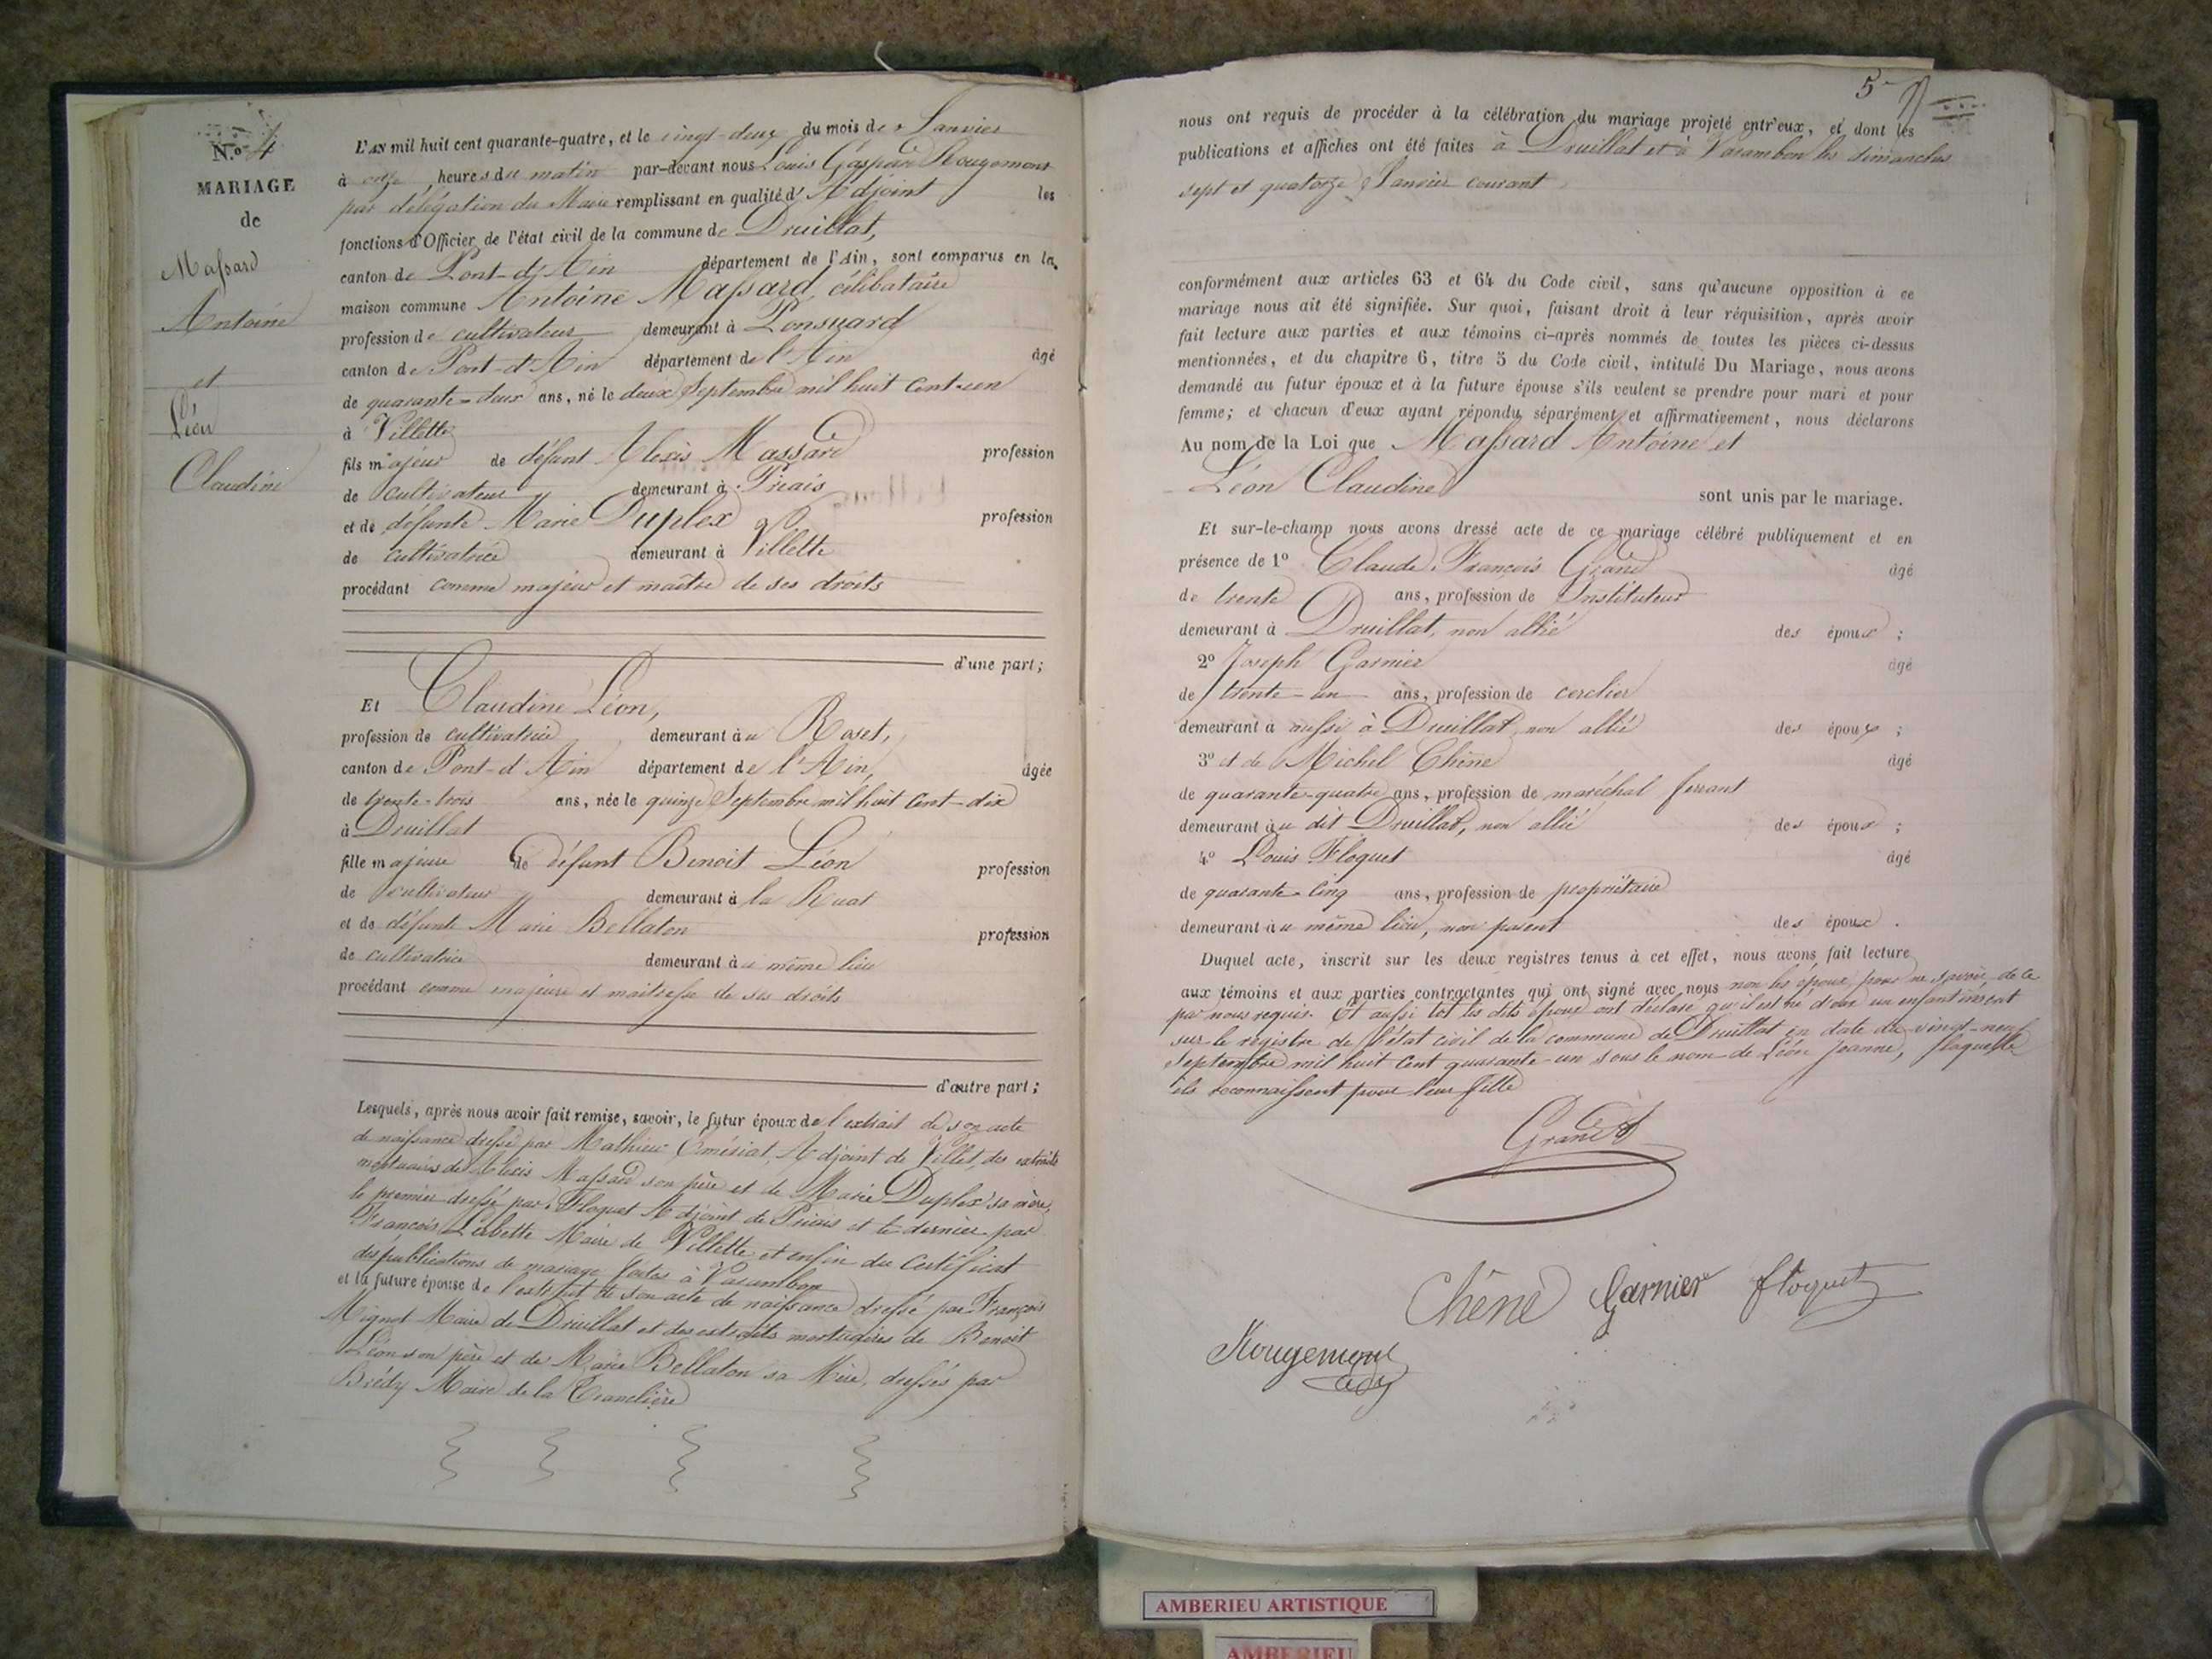 N.º 4
MARIAGE
de
Massard
Antoine
et
Léon
Claudine
L'AN mil huit cent quarante-quatre, et le vingt-deux du mois de Janvier
à onze heures du matin par-devant nous Louis Gaspard Rougemont
par délégation du Maire remplissant en qualité d'Adjoint les
fonctions d'Officier de l'état civil de la commune de Druillat,
canton de Pont-d'Ain département de l'Ain, sont comparus en la
maison commune Antoine Massard, célibataire
profession de cultivateur demeurant à Ponsuard
canton de Pont-d'Ain département de l'Ain âgé
de quarante-deux ans, né le deux Septembre mil huit cent-un
à Villette
fils majeur de défunt Alexis Massard profession
de cultivateur demeurant à Priais
et de défunte Marie Duplex profession
de cultivatrice demeurant à Villette
procédant comme majeur et maître de ses droits
d'une part;
Et Claudine Léon,
profession de cultivatrice demeurant au Roset,
canton de Pont-d'Ain département de l'Ain, âgée
de trente-trois ans, née le quinze Septembre mil huit cent-dix
à Druillat
fille majeure de défunt Benoit Léon profession
de cultivateur demeurant à la Ruat
et de défunte Marie Bellaton profession
de cultivatrice demeurant au même lieu
procédant comme majeure et maitresse de ses droits
d'autre part;
Lesquels, après nous avoir fait remise, savoir, le futur époux de l'extrait de son acte
de naissance dressé par Mathieu Adjoint de Villet, des extraits
mortuaires de Alexis Massard son père et de Marie Duplex sa mère,
le premier dressé par Floquet Adjoint de Priais et le dernier par
François Labette Maire de Villette et enfin du certificat
des publications de mariage faites à Varambon
et la future épouse de l'extrait de son acte de naissance dressé par François
Mignot Maire de Druillat et des extraits mortuaires de Benoit
Léon son père et de Marie Bellaton sa Mère, dressés par
Maire de la Tranclière
5
nous ont requis de procéder à la célébration du mariage projeté entr'eux, et dont les
publications et affiches ont été faites à Druillat et à Varambon les dimanches
sept et quatorze Janvier courant
conformément aux articles 63 et 64 du Code civil, sans qu'aucune opposition à ce
mariage nous ait été signifiée. Sur quoi, faisant droit à leur réquisition, après avoir
fait lecture aux parties et aux témoins ci-après nommés de toutes les pièces ci-dessus
mentionnées, et du chapitre 6, titre 5 du Code civil, intitulé Du Mariage, nous avons
demandé au futur époux et à la future épouse s'ils veulent se prendre pour mari et pour
femme; et chacun d'eux ayant répondu séparément et affirmativement, nous déclarons
Au nom de la Loi que Massard Antoine et
Léon Claudine sont unis par le mariage.
Et sur-le-champ nous avons dressé acte de ce mariage célébré publiquement et en
présence de 1º Claude François Grand âgé
de trente ans, profession de Instituteur
demeurant à Druillat, non allié des époux ;
2º Joseph Garnier âgé
de trente-un ans, profession de cerclier
demeurant à aussi à Druillat, non allié des époux ;
3º et de Michel Chêne âgé
de quarante-quatre ans, profession de maréchal ferrant
demeurant au dit Druillat, non allié des époux ;
4º Louis Floquet âgé
de quarante-cinq ans, profession de propriétaire
demeurant au même lieu, non parent des époux .
Duquel acte, inscrit sur les deux registres tenus à cet effet, nous avons fait lecture
aux témoins et aux parties contractantes qui ont signé avec nous non les époux pour ne savoir de ce
par nous requis. Et aussi tôt les dits époux ont déclaré qu'il est né d'eux un enfant inscrit
sur le registre de l'état civil de la commune de Druillat en date du vingt-neuf
Septembre mil huit cent quarante-un sous le nom de Léon Jeanne, laquelle
ils reconnaissent pour leur fille
Grand
Chêne Garnier Floquet
Rougemont
adj
AMBERIEU ARTISTIQUE
AMBERIEU